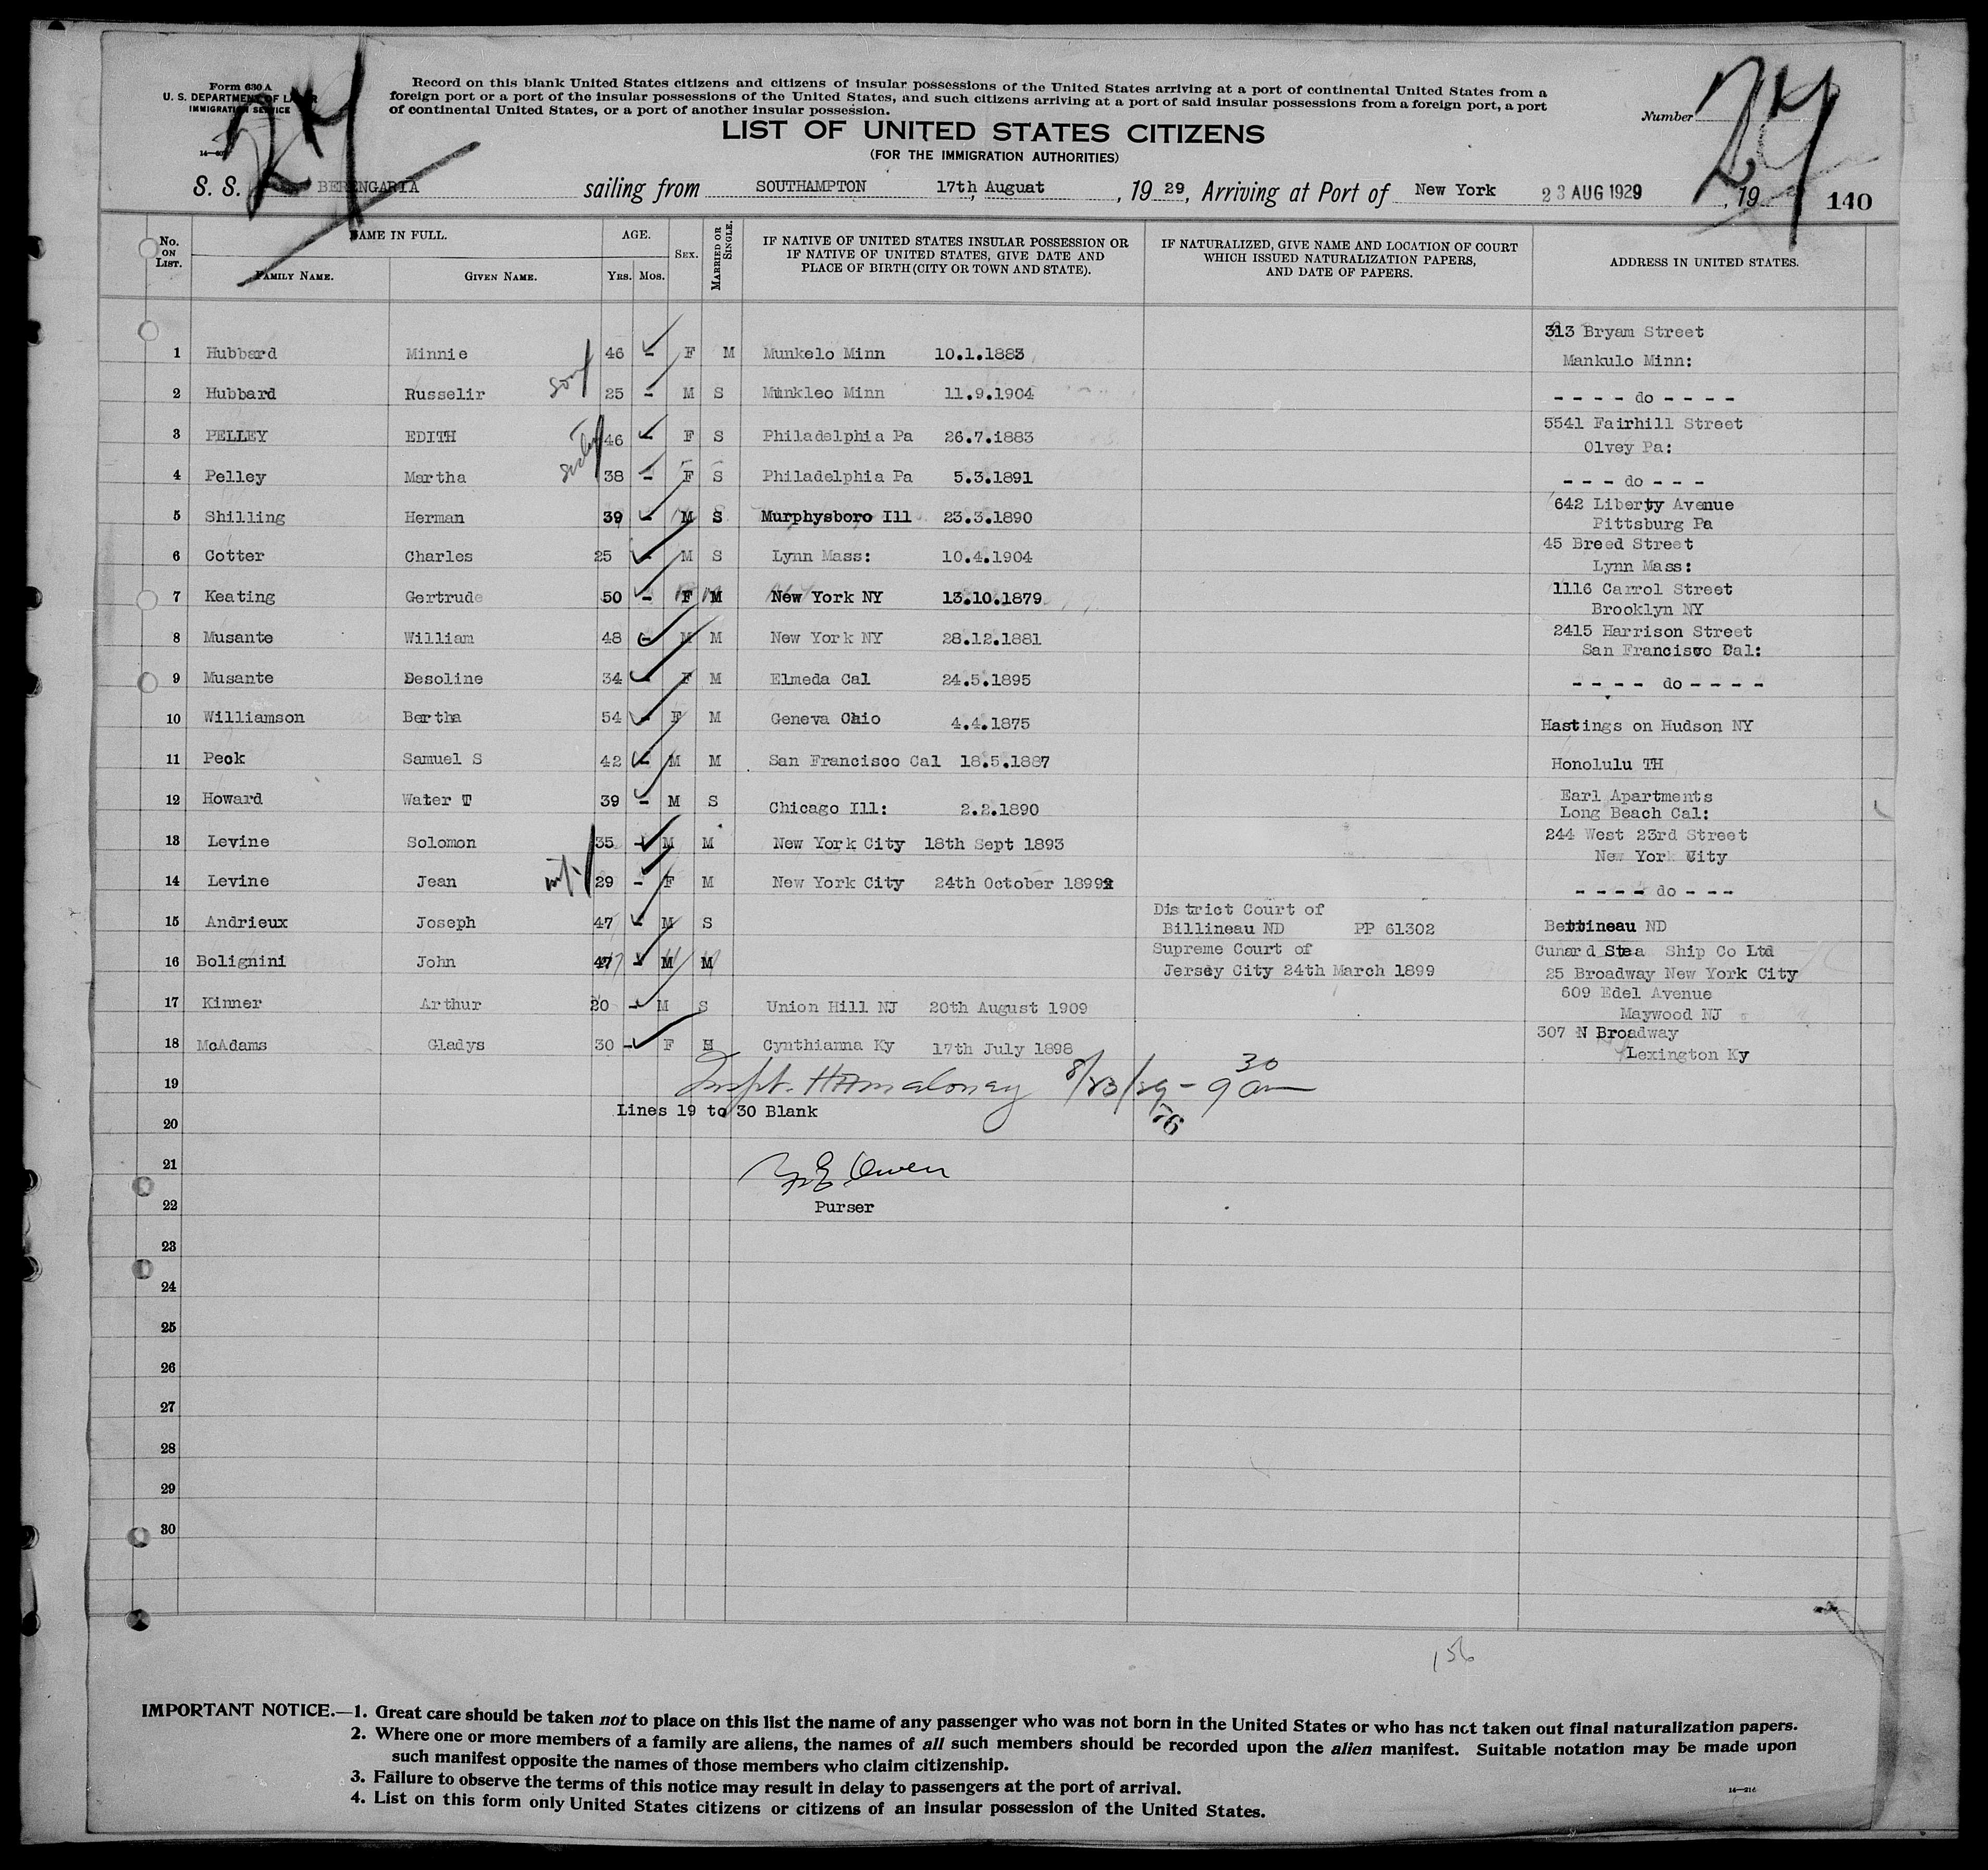 Form 630 A
U. S. DEPARTMENT OF LABOR
IMMIGRATION SERVICE
Record on this blank United States citizens and citizens of insular possessions of the United States arriving at a port of continental United States from a
foreign port or a port of the insular possessions of the United States, and such citizens arriving at a port of said insular possessions from a foreign port, a port
of continental United States, or a port of another insular possession.
LIST OF UNITED STATES CITIZENS
(FOR THE IMMIGRATION AUTHORITIES)
Number
24
24
S. S. BERENGARIA sailing from SOUTHAMPTON 17th, Auguat, 19 29, Arriving at Port of New York 23 AUG 1929, 19 140
No. ON LIST. NAME IN FULL. AGE. SEX. MARRIED OR SINGLE. IF NATIVE OF UNITED STATES INSULAR POSSESSION OR IF NATIVE OF UNITED STATES, GIVE DATE AND PLACE OF BIRTH (CITY OR TOWN AND STATE). IF NATURALIZED, GIVE NAME AND LOCATION OF COURT WHICH ISSUED NATURALIZATION PAPERS, AND DATE OF PAPERS. ADDRESS IN UNITED STATES.
FAMILY NAME. GIVEN NAME. Yrs. Mos.
313 Bryam Street
1 Hubbard Minnie 46 - F M Munkelo Minn 10.1.1883 Mankulo Minn:
2 Hubbard Russelir son 25 - M S Munkleo Minn 11.9.1904 - - - - do - - - -
5541 Fairhill Street
3 PELLEY EDITH 46 - F S Philadelphia Pa 26.7.1883 Olvey Pa:
4 Pelley Martha sister 38 - F S Philadelphia Pa 5.3.1891 - - - do - - -
642 Liberty Avenue
5 Shilling Herman 39 - M S Murphysboro Ill 23.3.1890 Pittsburg Pa
45 Breed Street
6 Cotter Charles 25 - M S Lynn Mass: 10.4.1904 Lynn Mass:
1116 Carrol Street
7 Keating Gertrude 50 - F M New York NY 13.10.1879 Brooklyn NY
2415 Harrison Street
8 Musante William 48 - M M New York NY 28.12.1881 San Francisvo Cal:
9 Musante Desoline 34 - F M Elmeda Cal 24.5.1895 - - - - do - - - -
10 Williamson Bertha 54 - F M Geneva Ohio 4.4.1875 Hastings on Hudson NY
11 Peck Samuel S 42 - M M San Francisco Cal 18.5.1887 Honolulu TH
Earl Apartments
12 Howard Water T 39 - M S Chicago Ill: 2.2.1890 Long Beach Cal:
244 West 23rd Street
13 Levine Solomon 35 - M M New York City 18th Sept 1893 New York City
14 Levine Jean 29 - F M New York City 24th October 1899 - - - - do - - -
District Court of
15 Andrieux Joseph 47 - M S Billineau ND PP 61302 Bettineau ND
Supreme Court of Cunard Stea Ship Co Ltd
16 Bolignini John 47 - M M Jersey City 24th March 1899 25 Broadway New York City
609 Edel Avenue
17 Kinner Arthur 20 - M S Union Hill NJ 20th August 1909 Maywood NJ
307 N Broadway
18 McAdams Gladys 30 - F M Cynthianna Ky 17th July 1898 Lexington Ky
19 Inspt. H A Maloney 8/23/29 - 9 30 am
Lines 19 to 30 Blank
76
20
21
Owen
22 Purser
23
24
25
26
27
28
29
30
156
IMPORTANT NOTICE.—1. Great care should be taken not to place on this list the name of any passenger who was not born in the United States or who has not taken out final naturalization papers.
2. Where one or more members of a family are aliens, the names of all such members should be recorded upon the alien manifest. Suitable notation may be made upon
such manifest opposite the names of those members who claim citizenship.
3. Failure to observe the terms of this notice may result in delay to passengers at the port of arrival.
4. List on this form only United States citizens or citizens of an insular possession of the United States.